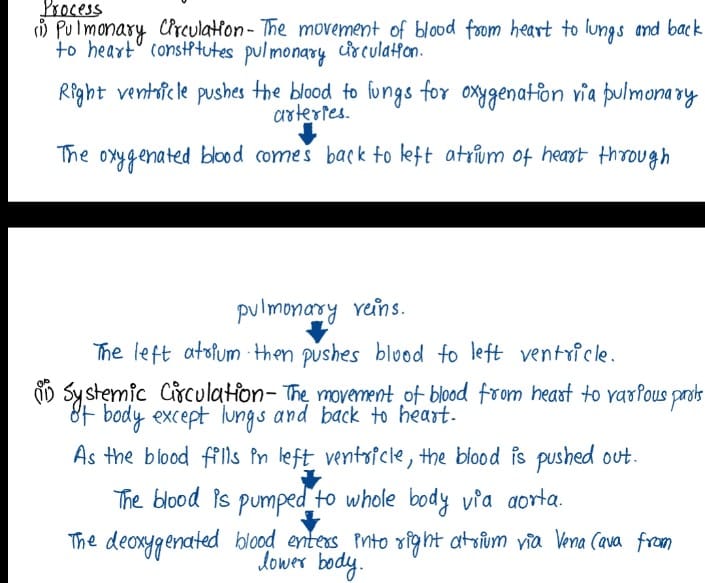 Process
(i) Pulmonary Circulation - The movement of blood from heart to lungs and back
to heart constitutes pulmonary circulation.
Right ventricle pushes the blood to lungs for oxygenation via pulmonary
arteries.
The oxygenated blood comes back to left atrium of heart through
pulmonary veins.
The left atrium then pushes blood to left ventricle.
(ii) Systemic Circulation - The movement of blood from heart to various parts
of body except lungs and back to heart.
As the blood fills in left ventricle, the blood is pushed out.
The blood is pumped to whole body via aorta.
The deoxygenated blood enters into right atrium via Vena Cava from
lower body.